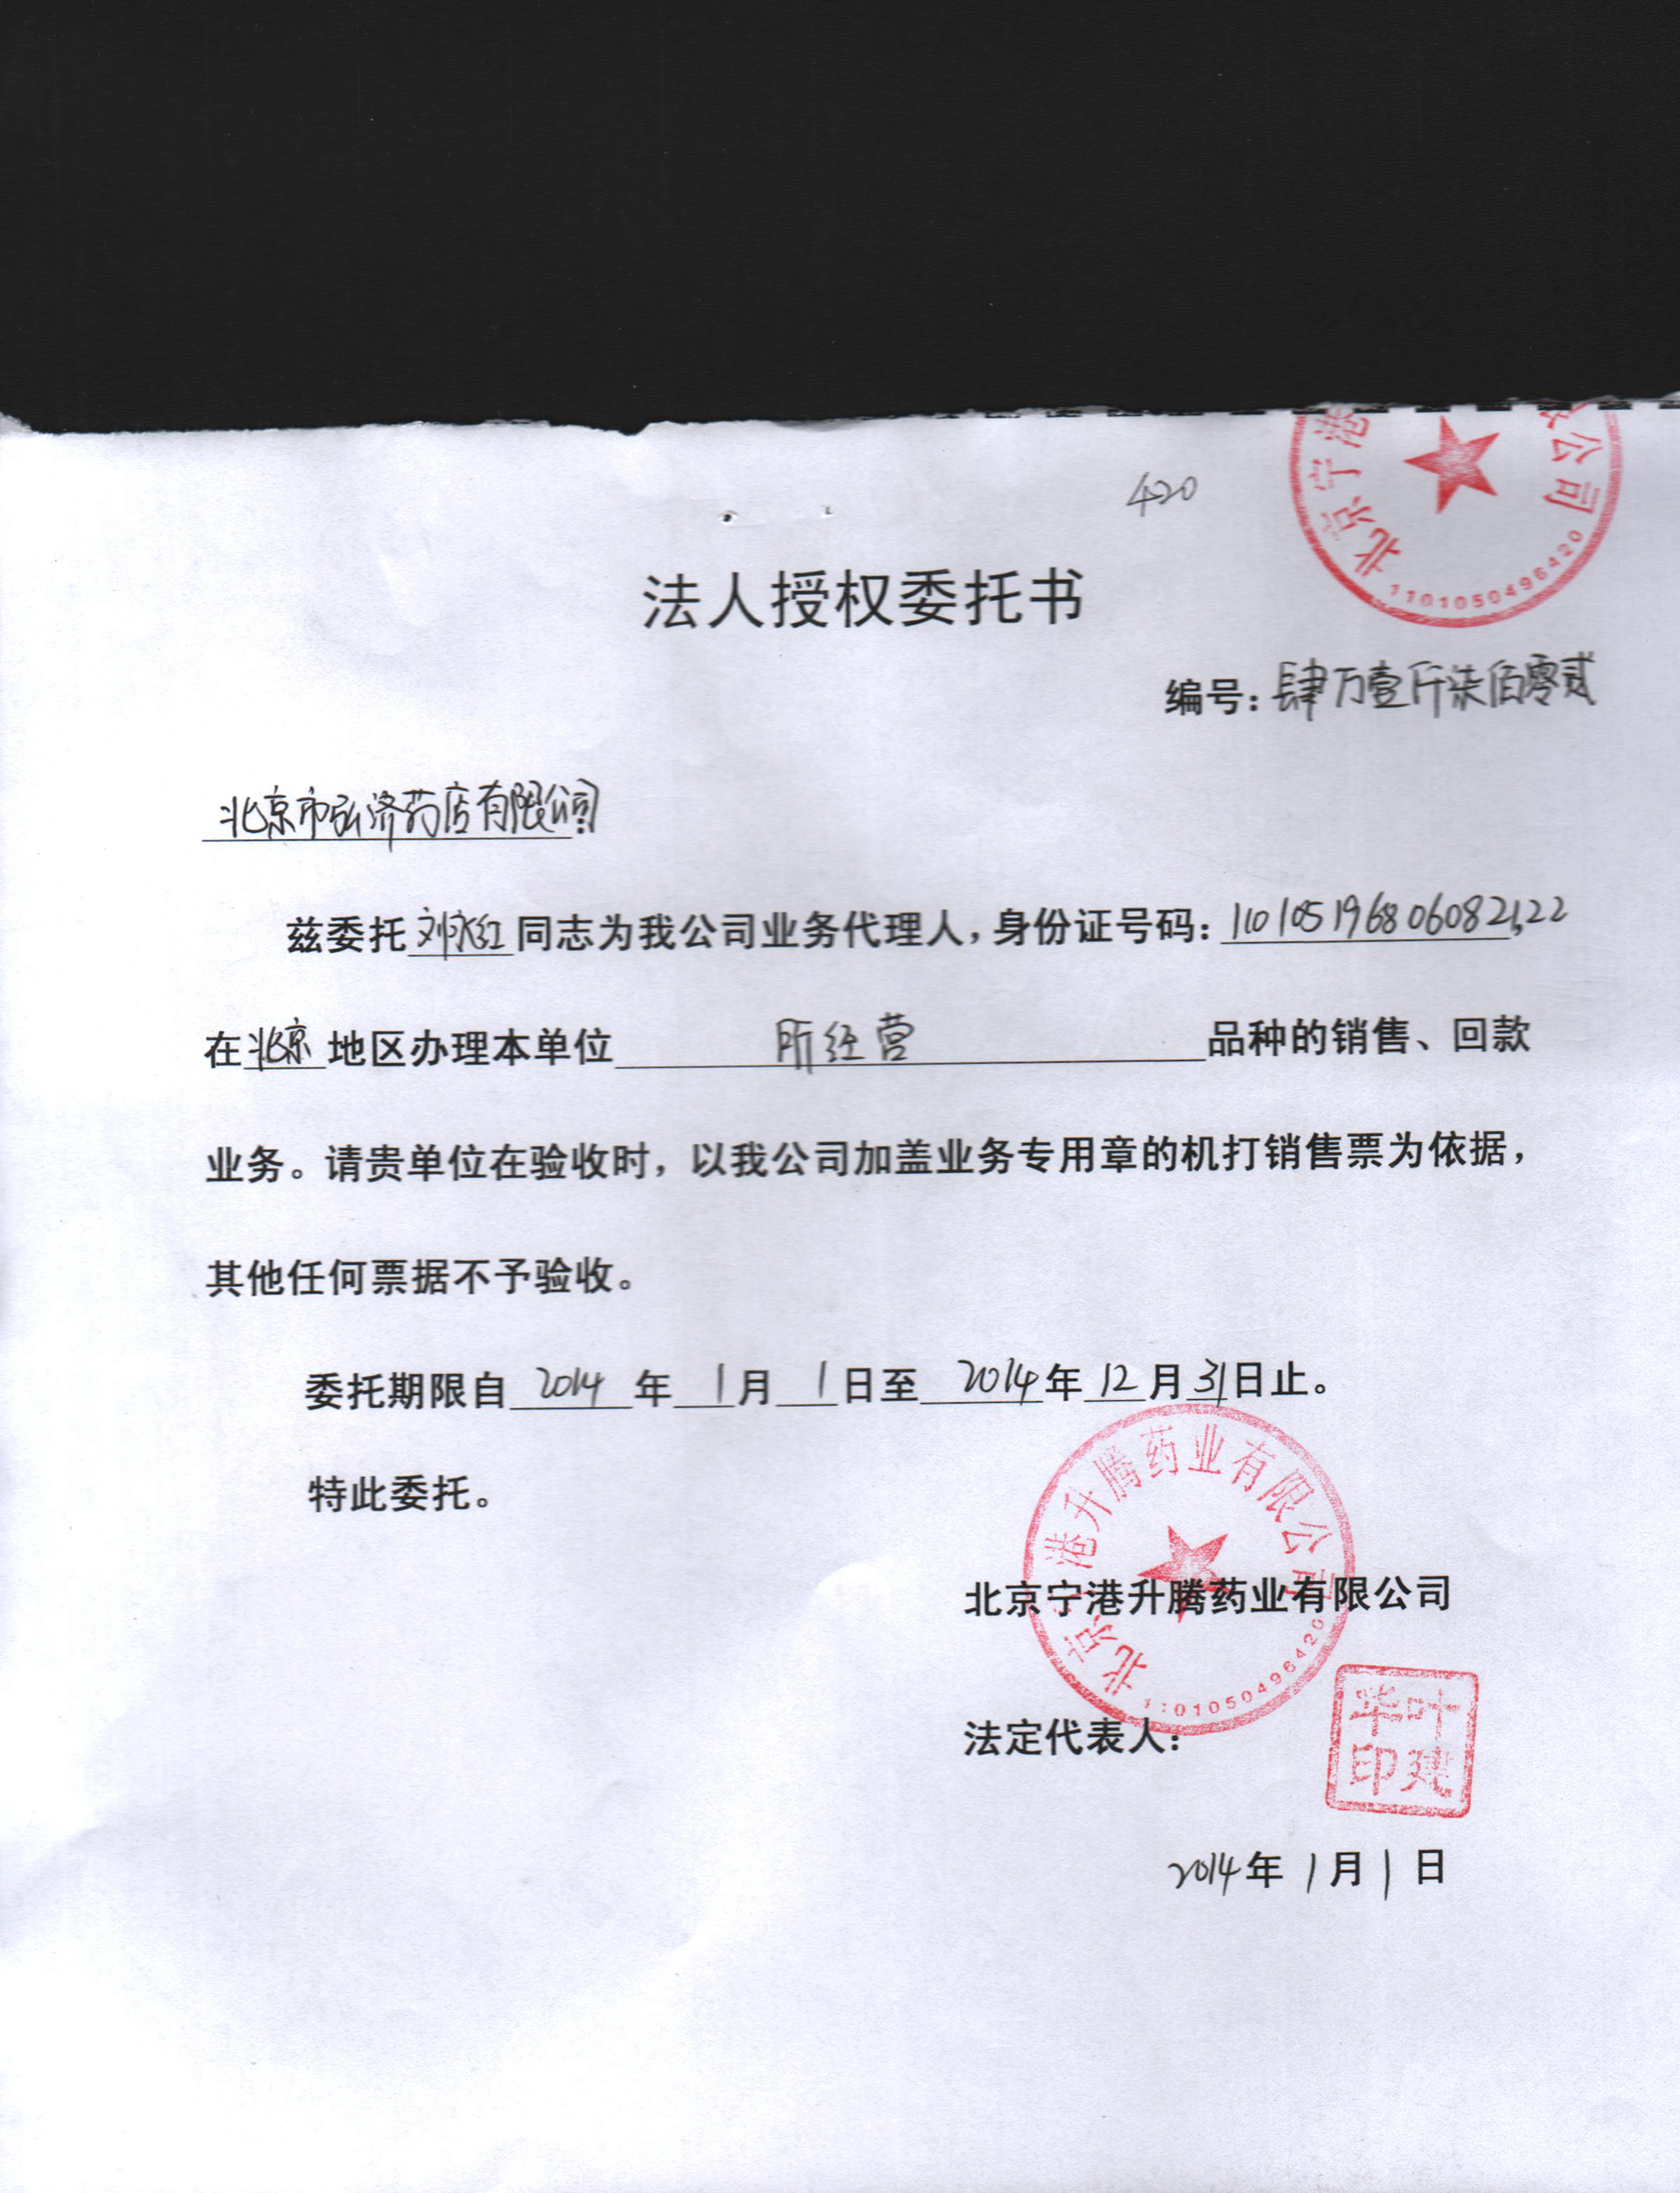 北京宁港 公司
1101050496420
420
法人授权委托书
编号：肆万壹仟柒佰零贰
北京市弘济药店有限公司：
兹委托刘永红同志为我公司业务代理人，身份证号码：110105196806082122，
在北京地区办理本单位所经营品种的销售、回款
业务。请贵单位在验收时，以我公司加盖业务专用章的机打销售票为依据，
其他任何票据不予验收。
委托期限自2014年1月1日至2014年12月31日止。
特此委托。
北京宁港升腾药业有限公司
1101050496420
北京宁港升腾药业有限公司
法定代表人：
叶建华印
2014年1月1日